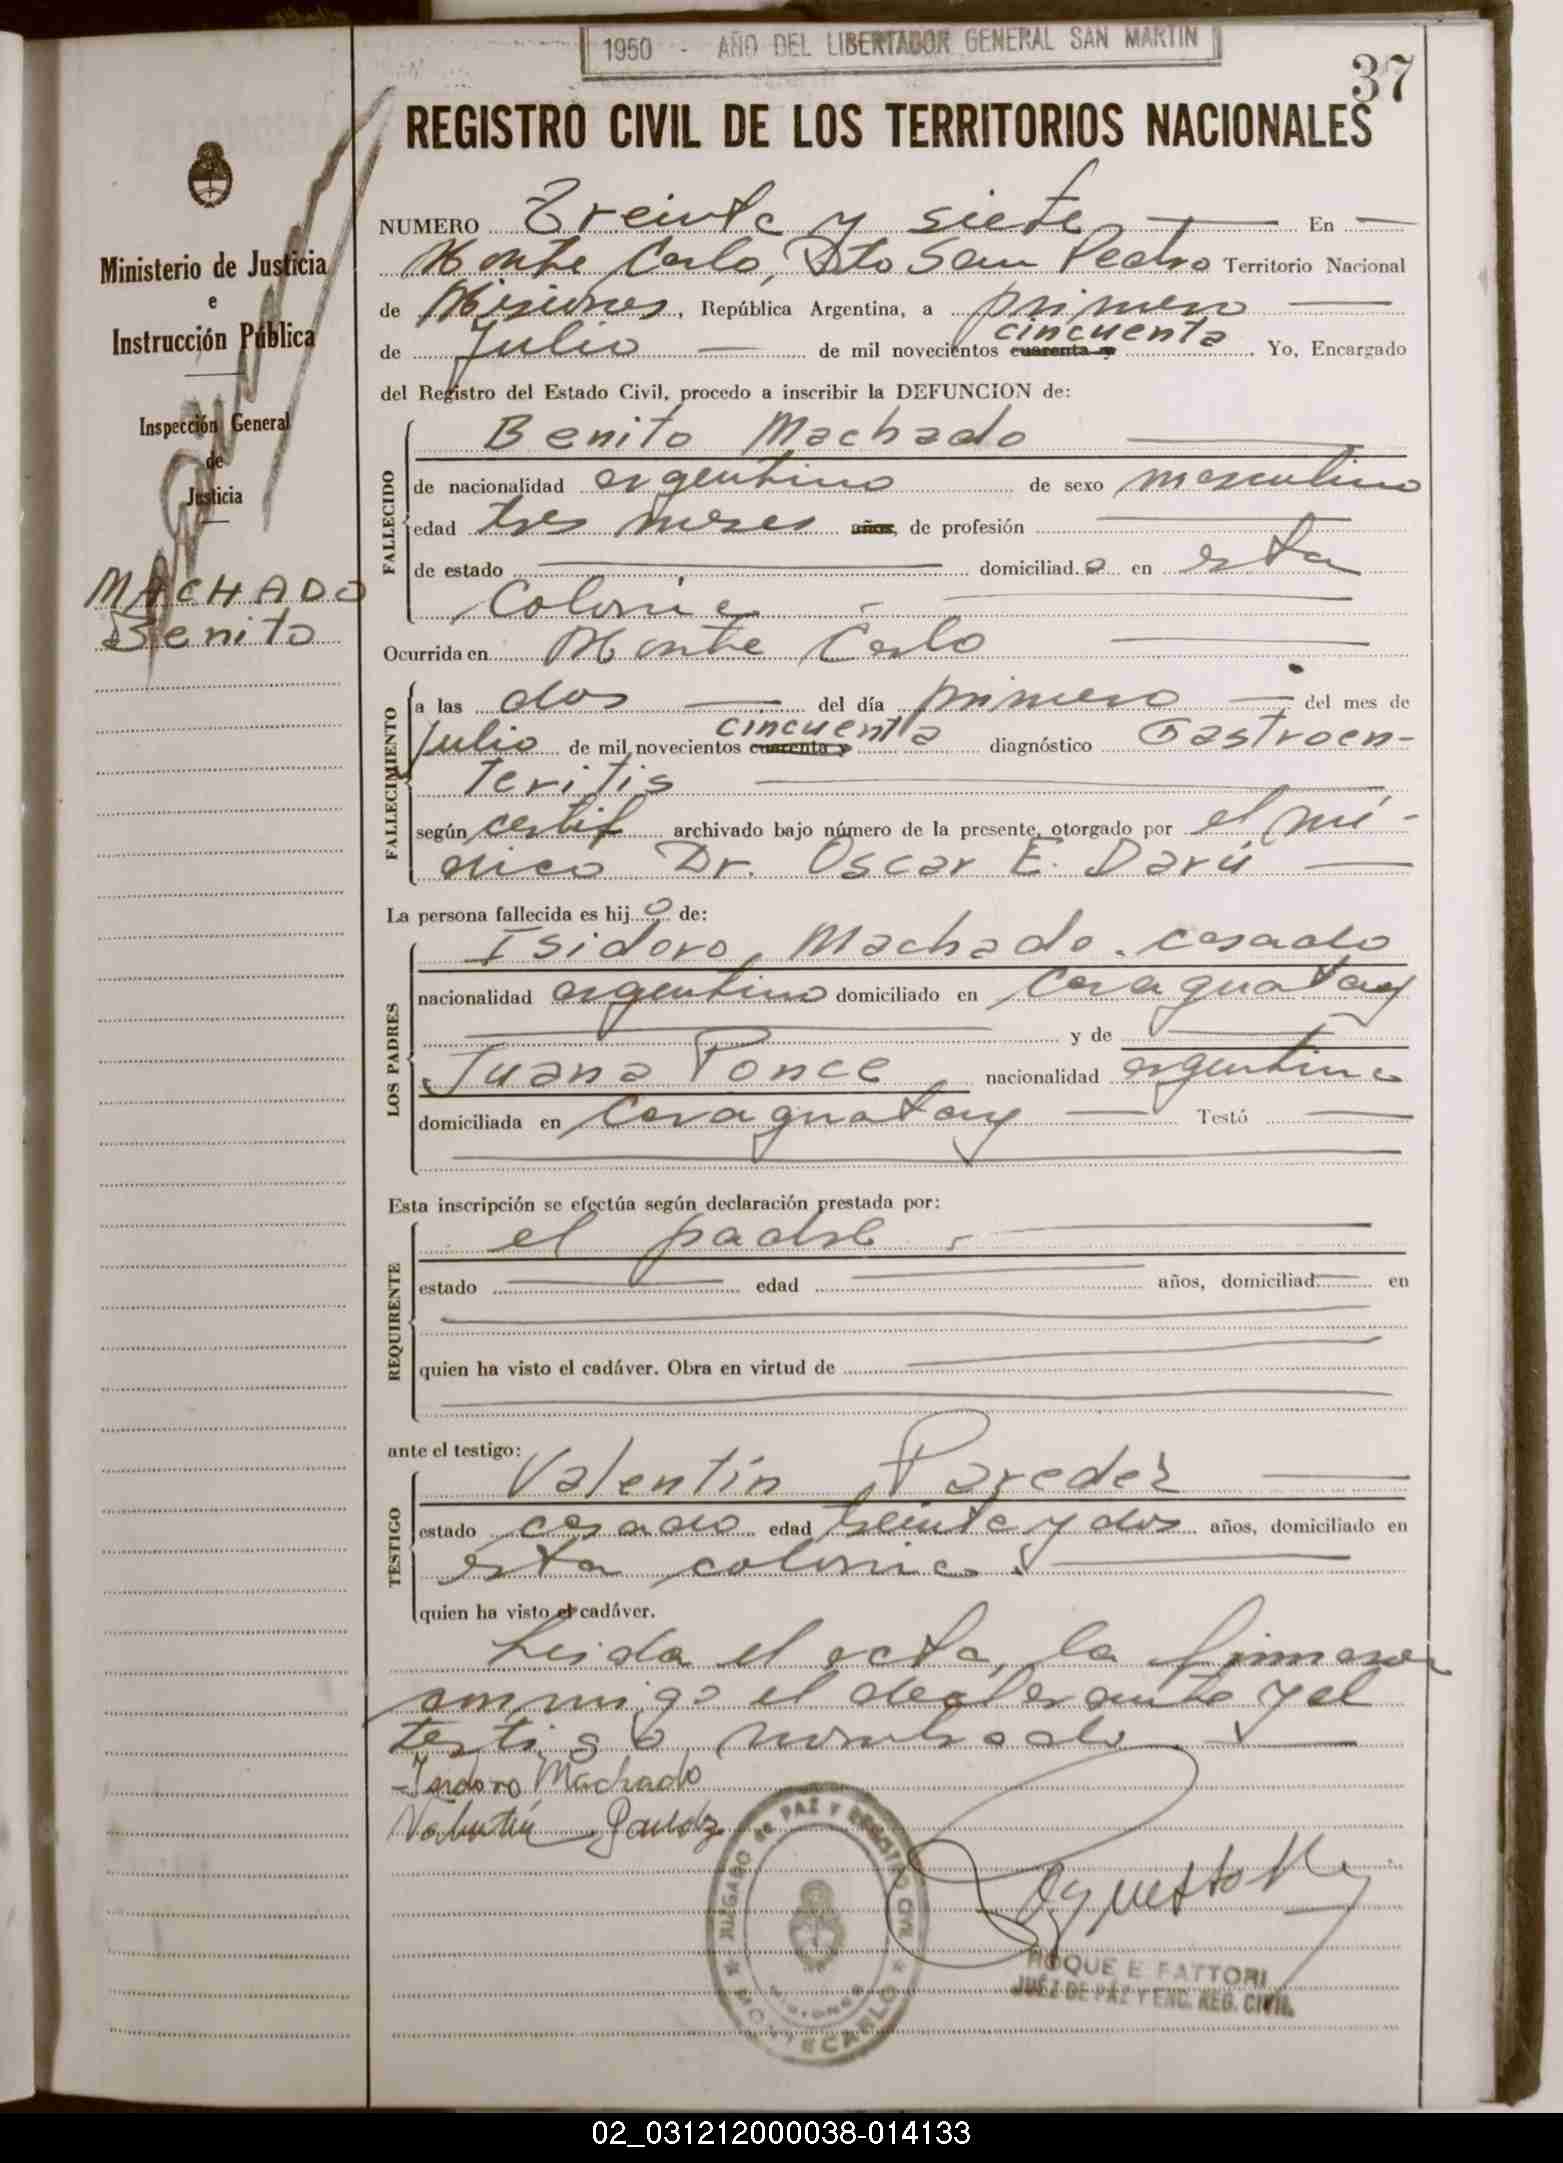 1950 - AÑO DEL LIBERTADOR GENERAL SAN MARTIN
37
REGISTRO CIVIL DE LOS TERRITORIOS NACIONALES
Ministerio de Justicia
e
Instrucción Pública
Inspección General
de
Justicia
MACHADO
Benito
NUMERO Treinta y siete En
Monte Carlo, Dto San Pedro Territorio Nacional
de Misiones, República Argentina, a primero
de Julio de mil novecientos cuarenta y cincuenta. Yo, Encargado
del Registro del Estado Civil, procedo a inscribir la DEFUNCION de:
FALLECIDO
Benito Machado
de nacionalidad argentino de sexo masculino
edad tres meses años, de profesión
de estado domiciliado en esta
Colonia
Ocurrida en Monte Carlo
FALLECIMIENTO
a las dos del día primero del mes de
Julio de mil novecientos cuarenta y cincuenta diagnóstico Gastroen-
teritis
según certif archivado bajo número de la presente, otorgado por el mé-
dico Dr. Oscar E. Darú
La persona fallecida es hijo de:
LOS PADRES
Isidoro Machado. casado
nacionalidad argentino domiciliado en Caraguatay
y de
Juana Ponce nacionalidad argentina
domiciliada en Caraguatay Testó
Esta inscripción se efectúa según declaración prestada por:
REQUIRENTE
el padre
estado edad años, domiciliad en
quien ha visto el cadáver. Obra en virtud de
ante el testigo:
TESTIGO
Valentín Paredez
estado casado edad treinta y dos años, domiciliado en
esta colonia.
quien ha visto el cadáver.
Leida el acta, la firman
conmigo el declarante y el
testigo nombrado.
Isidoro Machado
Valentín Paredez
JUZGADO DE PAZ Y REGISTRO CIVIL
MISIONES
MONTECARLO
ROQUE E. FATTORI
JUEZ DE PAZ Y ENC. REG. CIVIL
02_031212000038-014133